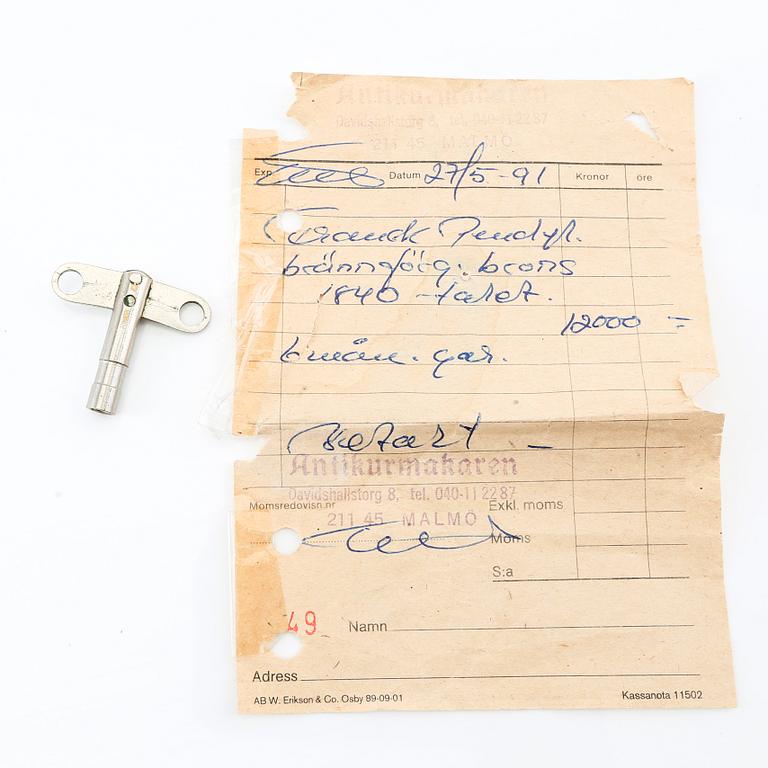 Antikurmakaren
Davidshallstorg 8, tel. 040-11 22 87
211 45 MALMÖ
Exp. Datum 27/5-91 Kronor öre
Fransk Pendyl.
brännförg. brons
1840-talet.
12000 =
6 mån. gar.
Betalt —
Antikurmakaren
Davidshallstorg 8, tel. 040-11 22 87
Momsredovisn.nr Exkl. moms
211 45 MALMÖ
Moms
S:a
49 Namn
Adress
AB W. Erikson & Co. Osby 89-09-01 Kassanota 11502